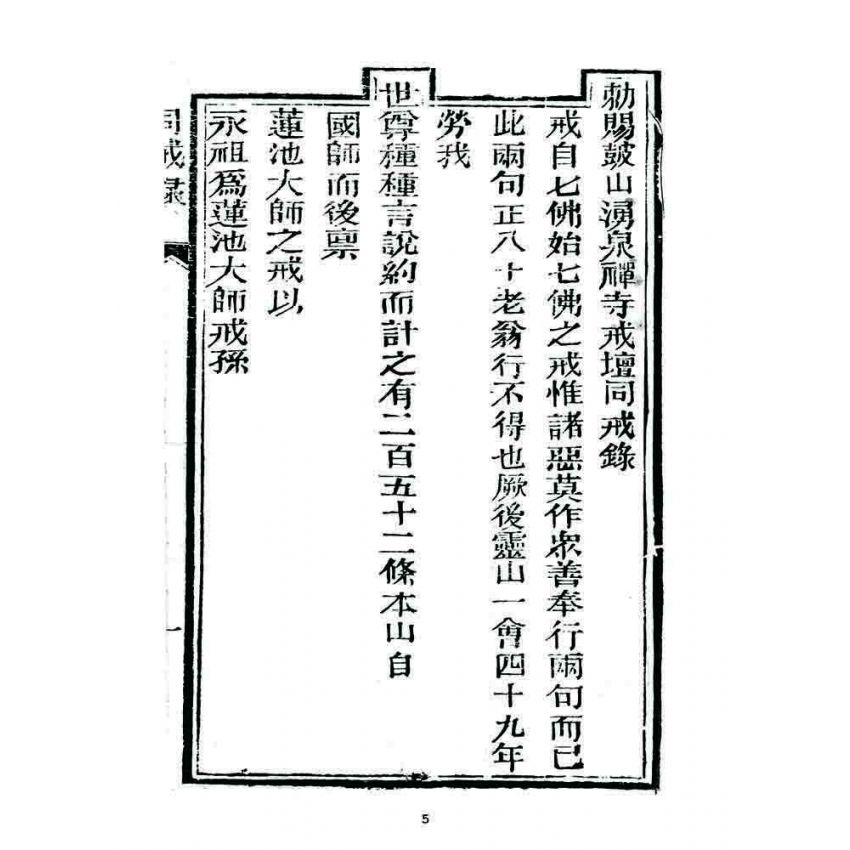 勅賜鼓山湧泉禪寺戒壇同戒錄
戒自七佛始七佛之戒惟諸惡莫作眾善奉行兩句而已
此兩句正八十老翁行不得也厥後靈山一會四十九年
勞我
世尊種種言說約而計之有二百五十二條本山自
國師而後禀
蓮池大師之戒以
永祖爲蓮池大師戒孫
同戒錄
一
5